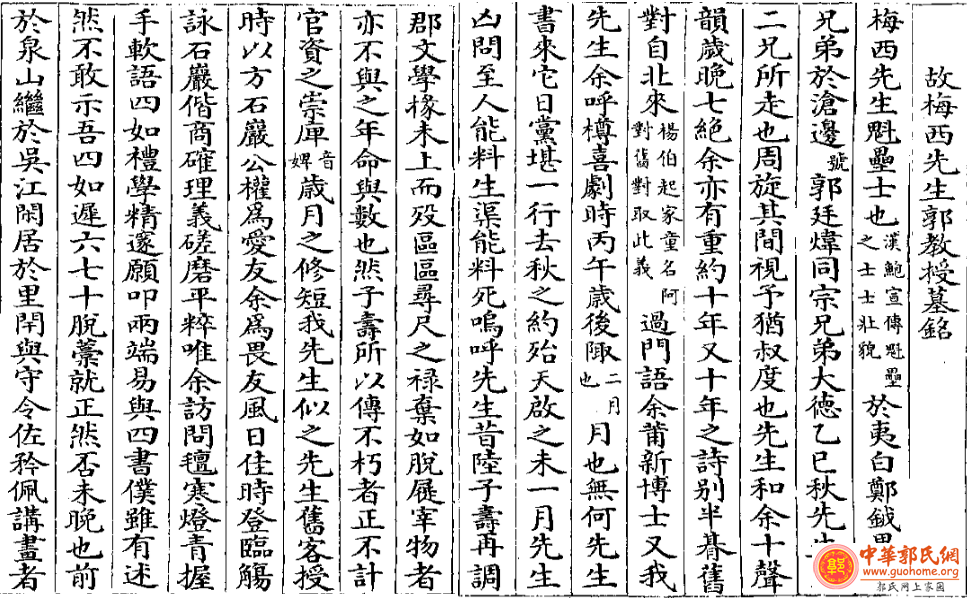 故梅西先生郭教授墓銘
梅西先生魁壘士也漢鮑宣傳魁壘之士士壯貌於夷白鄭鉞
兄弟於滄邊號郭廷煒同宗兄弟大德乙巳秋先生
二兄所走也周旋其間視予猶叔度也先生和余十聲
韻歲晚七絕余亦有重約十年又十年之詩別半朞舊
對自北來楊伯起家童名阿對舊對取此義過門語余莆新博士又我
先生余呼樽喜劇時丙午歲後陬二月也月也無何先生
書來它日黨堪一行去秋之約殆天啟之未一月先生
凶問至人能料生渠能料死嗚呼先生昔陸子壽再調
郡文學椽未上而歿區區尋尺之祿棄如脫屣宰物者
亦不與之年命與數也然子壽所以傳不朽者正不計
官資之崇庳音婢歲月之修短我先生似之先生舊客授
時以方石巖公權為愛友余為畏友風日佳時登臨觴
詠石巖偕商確理義磋磨平粹唯余訪問氊寒燈青握
手軟語四如禮學精邃願叩兩端易與四書僕雖有述
然不敢示吾四如遲六七十脫藁就正然否未晚也前
於泉山繼於吳江閑居於里閈與守令佐矜佩講畫者
中華郭氏網
www.guohome.org
郭氏網上家園